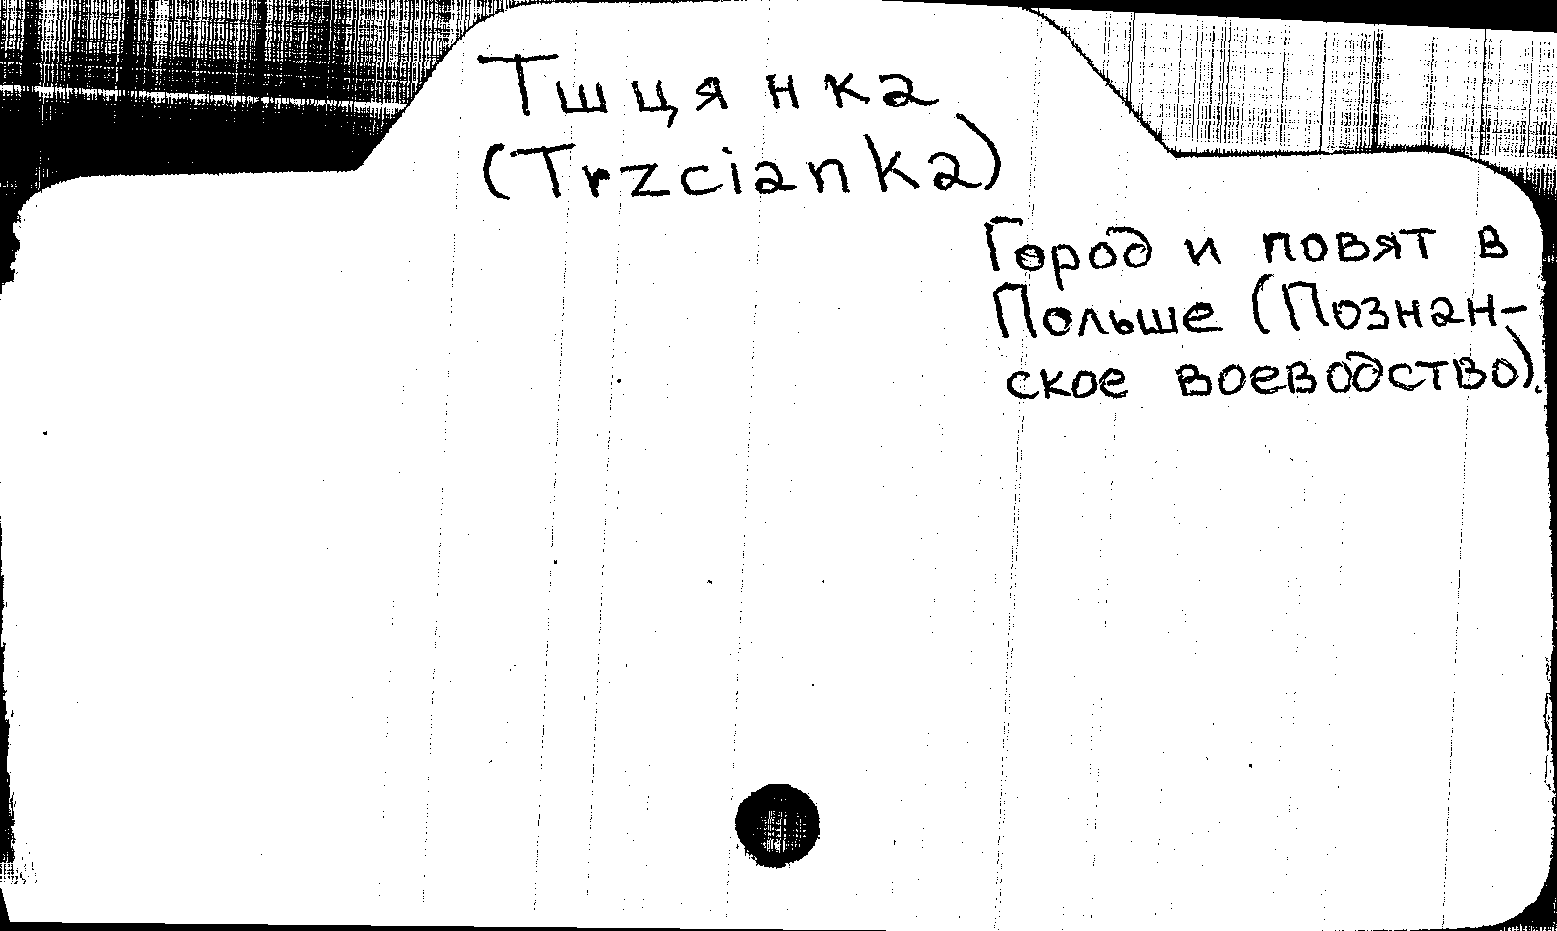 Тшцянка
(Trzcianka)
Город и повят в
Польше (Познан-
ское воеводство).